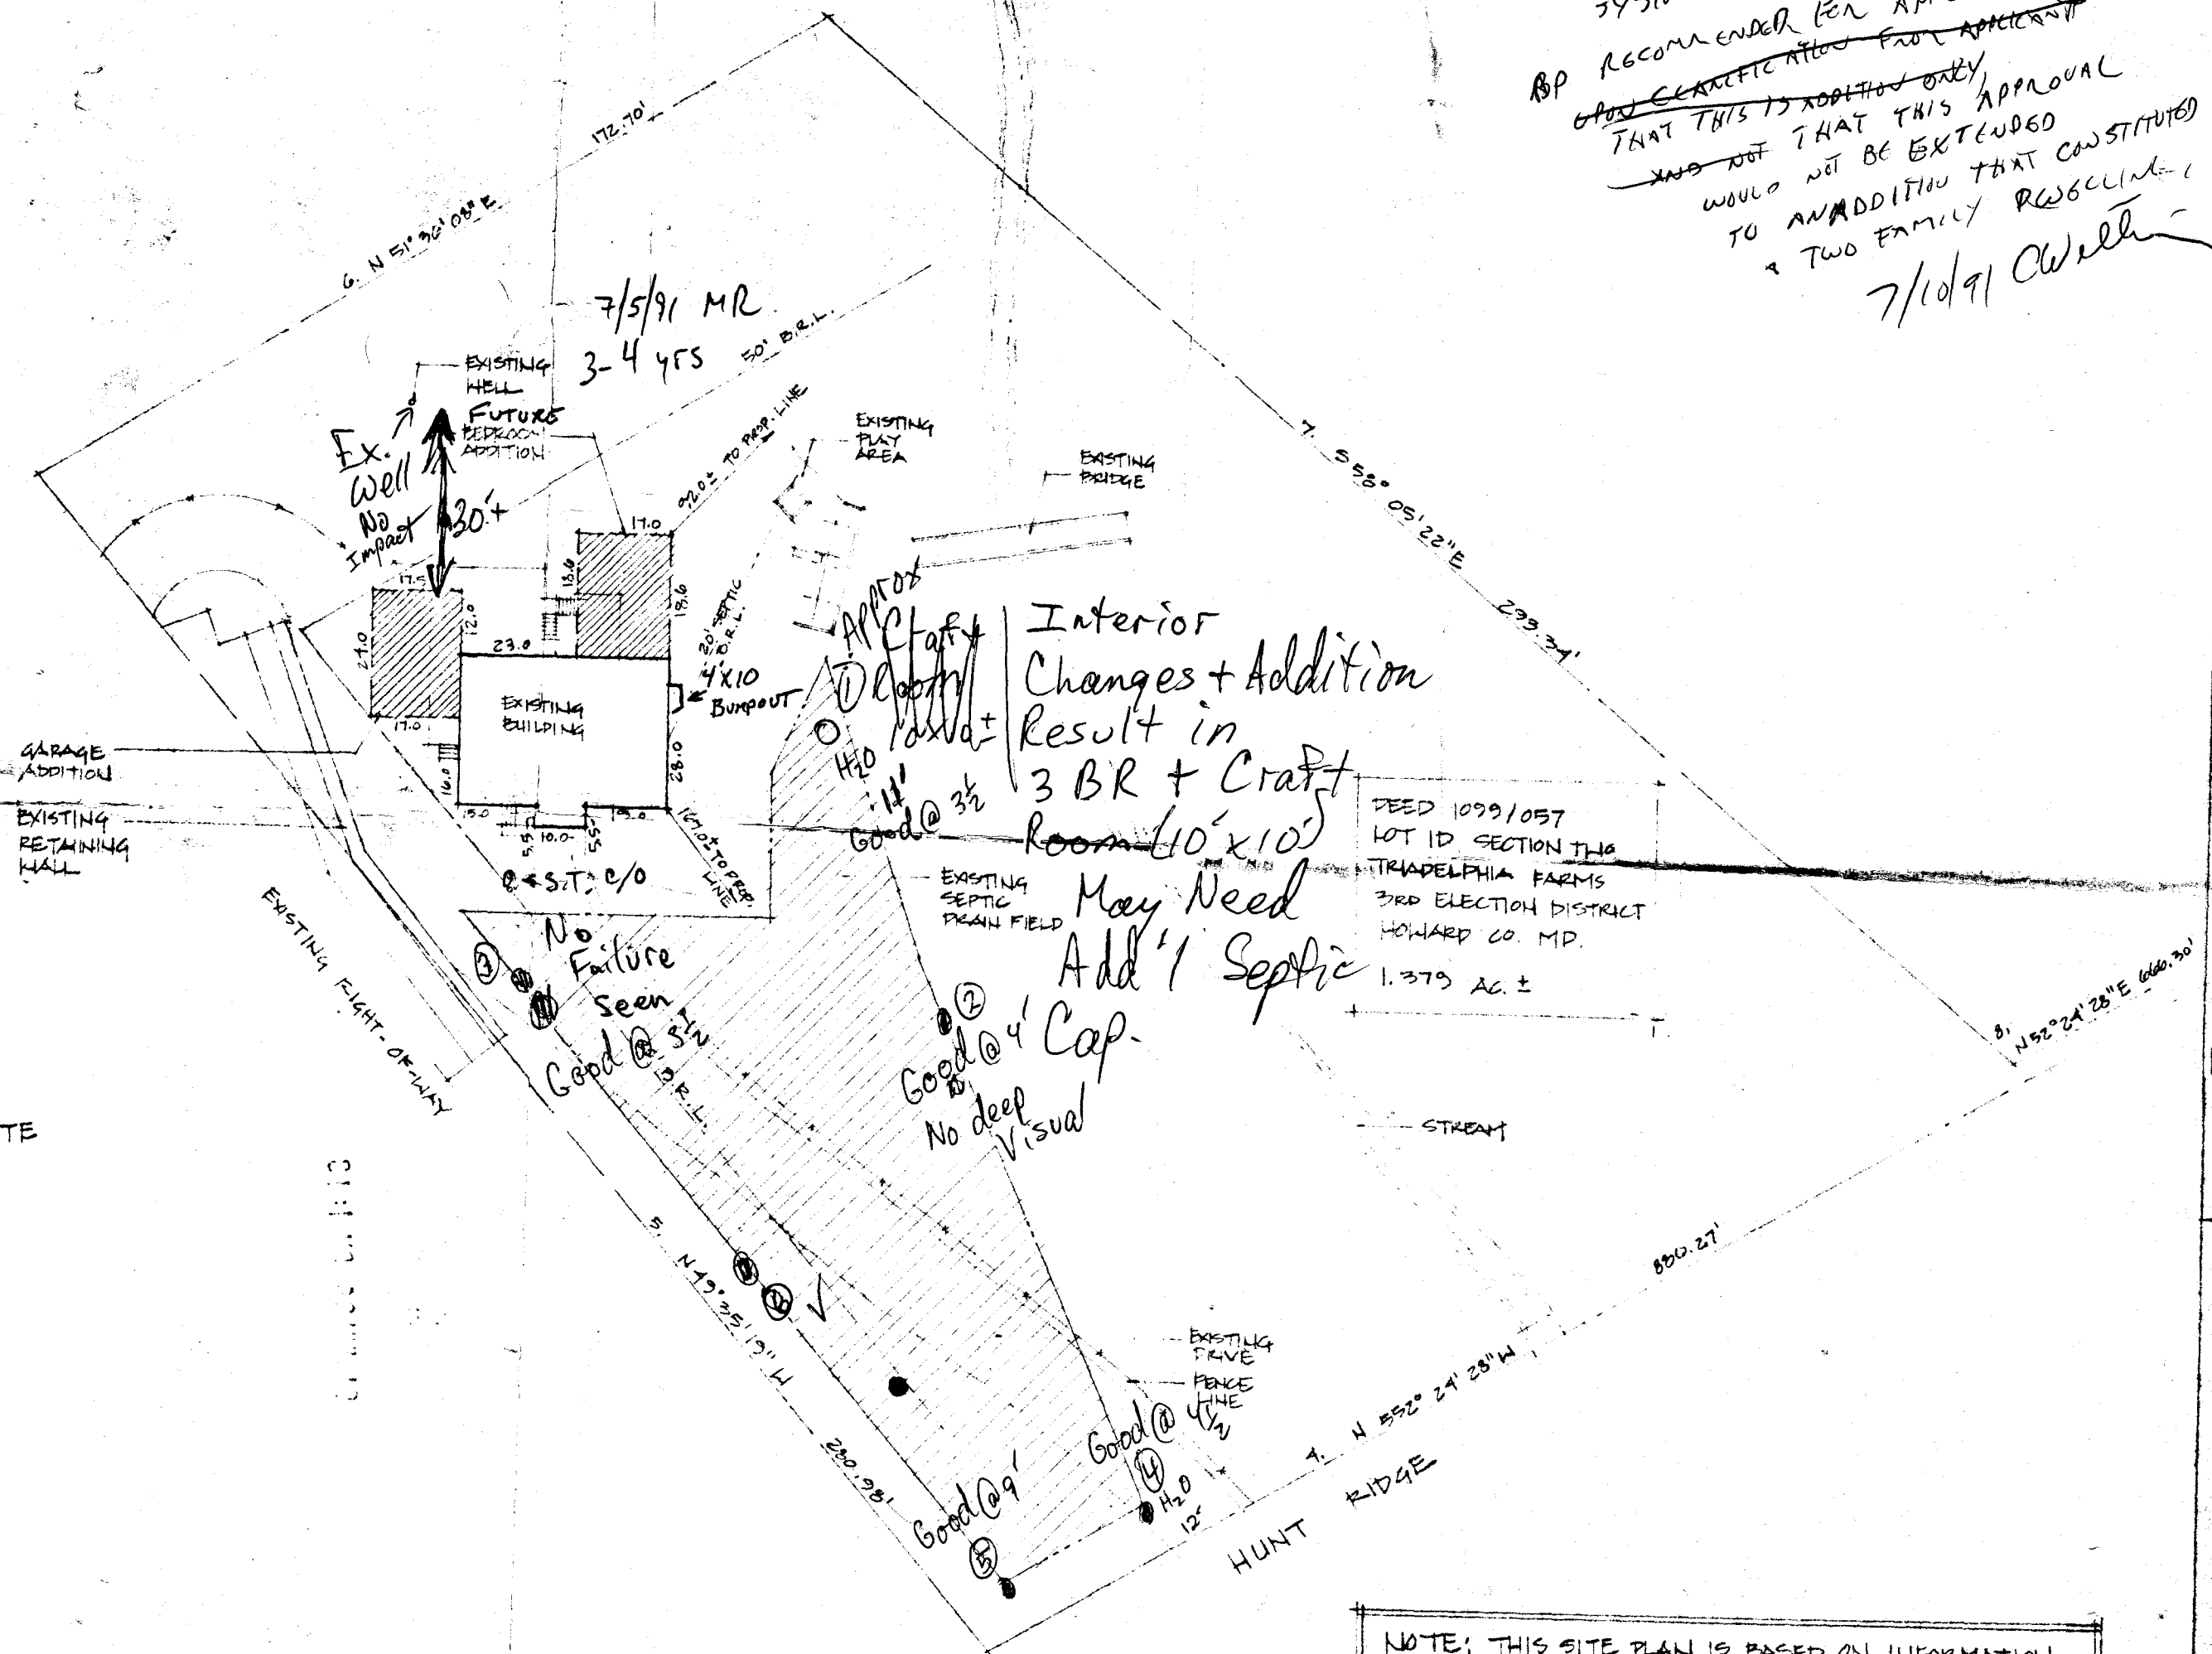 BP RECOMMENDED FOR
UPON CLARIFICATION FROM APPLICANT
THAT THIS IS ADDITION ONLY,
AND NOT THAT THIS APPROVAL
WOULD NOT BE EXTENDED
TO AN ADDITION THAT CONSTITUTED
TWO FAMILY
7/10/91
172.70'
6. N 51° 36' 08" E
7/5/91 MR
3-4 yrs
50' B.R.L.
EXISTING
WELL
FUTURE
BEDROOM
ADDITION
Ex.
Well
No
Impact
30'+
92.0± TO PROP. LINE
EXISTING
PLAY
AREA
EXISTING
BRIDGE
7. S 58° 05' 22" E
293.34'
17.0
18.6
18.6
17.5
12.0
24.0
23.0
17.0
20' SEPTIC
B.R.L.
4'X10
BUMPOUT
EXISTING
BUILDING
28.0
16.0
15.0
5.5
10.0
5.5
15.0
167.0± TO PROP.
LINE
GARAGE
ADDITION
EXISTING
RETAINING
WALL
EXISTING RIGHT-OF-WAY
S.T. C/O
No
Failure
Seen
7
Good @
B.R.L.
Approx
Craft
Room
1
H2O
11'
Good @ 3½
Interior
Changes + Addition
Result in
3 BR + Craft
Room (10' x 10')
May Need
Add'l Septic
Cap.
EXISTING
SEPTIC
DRAIN FIELD
DEED 1099/057
LOT 1D SECTION TWO
TRIADELPHIA FARMS
3RD ELECTION DISTRICT
HOWARD CO. MD.
1.379 AC. ±
2
Good @ 4'
No deep
Visual
STREAM
8.
N 52° 24' 28" E 666.30'
880.27'
TE
5. N 49° 35' 19" W
280.98'
EXISTING
DRIVE
FENCE
LINE
Good @ 4½
4
H2O
12'
Good @ 9'
5
4. N 552° 24' 28" W
HUNT RIDGE
NOTE: THIS SITE PLAN IS BASED ON INFORMATION